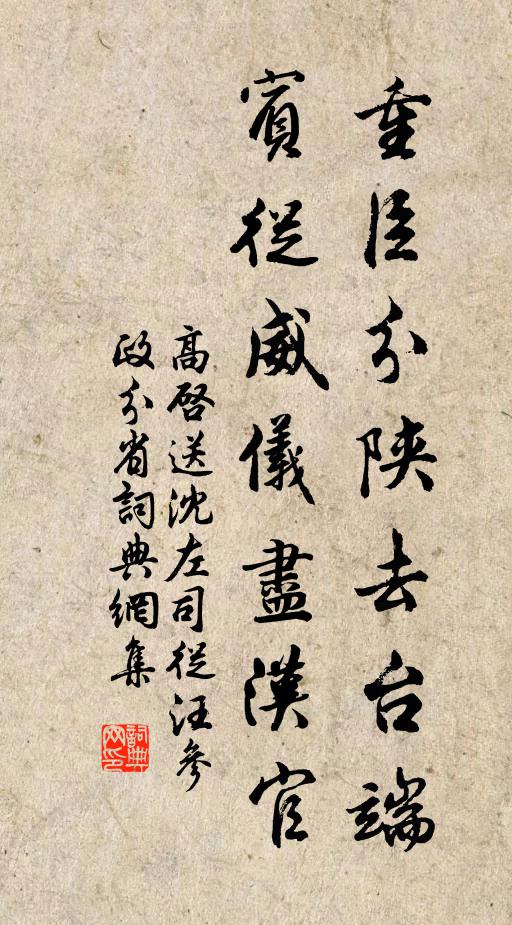 重臣分陝去台端
賓從威儀盡漢官
高啓送沈左司從汪參
政分省詞典網集
詞典網印